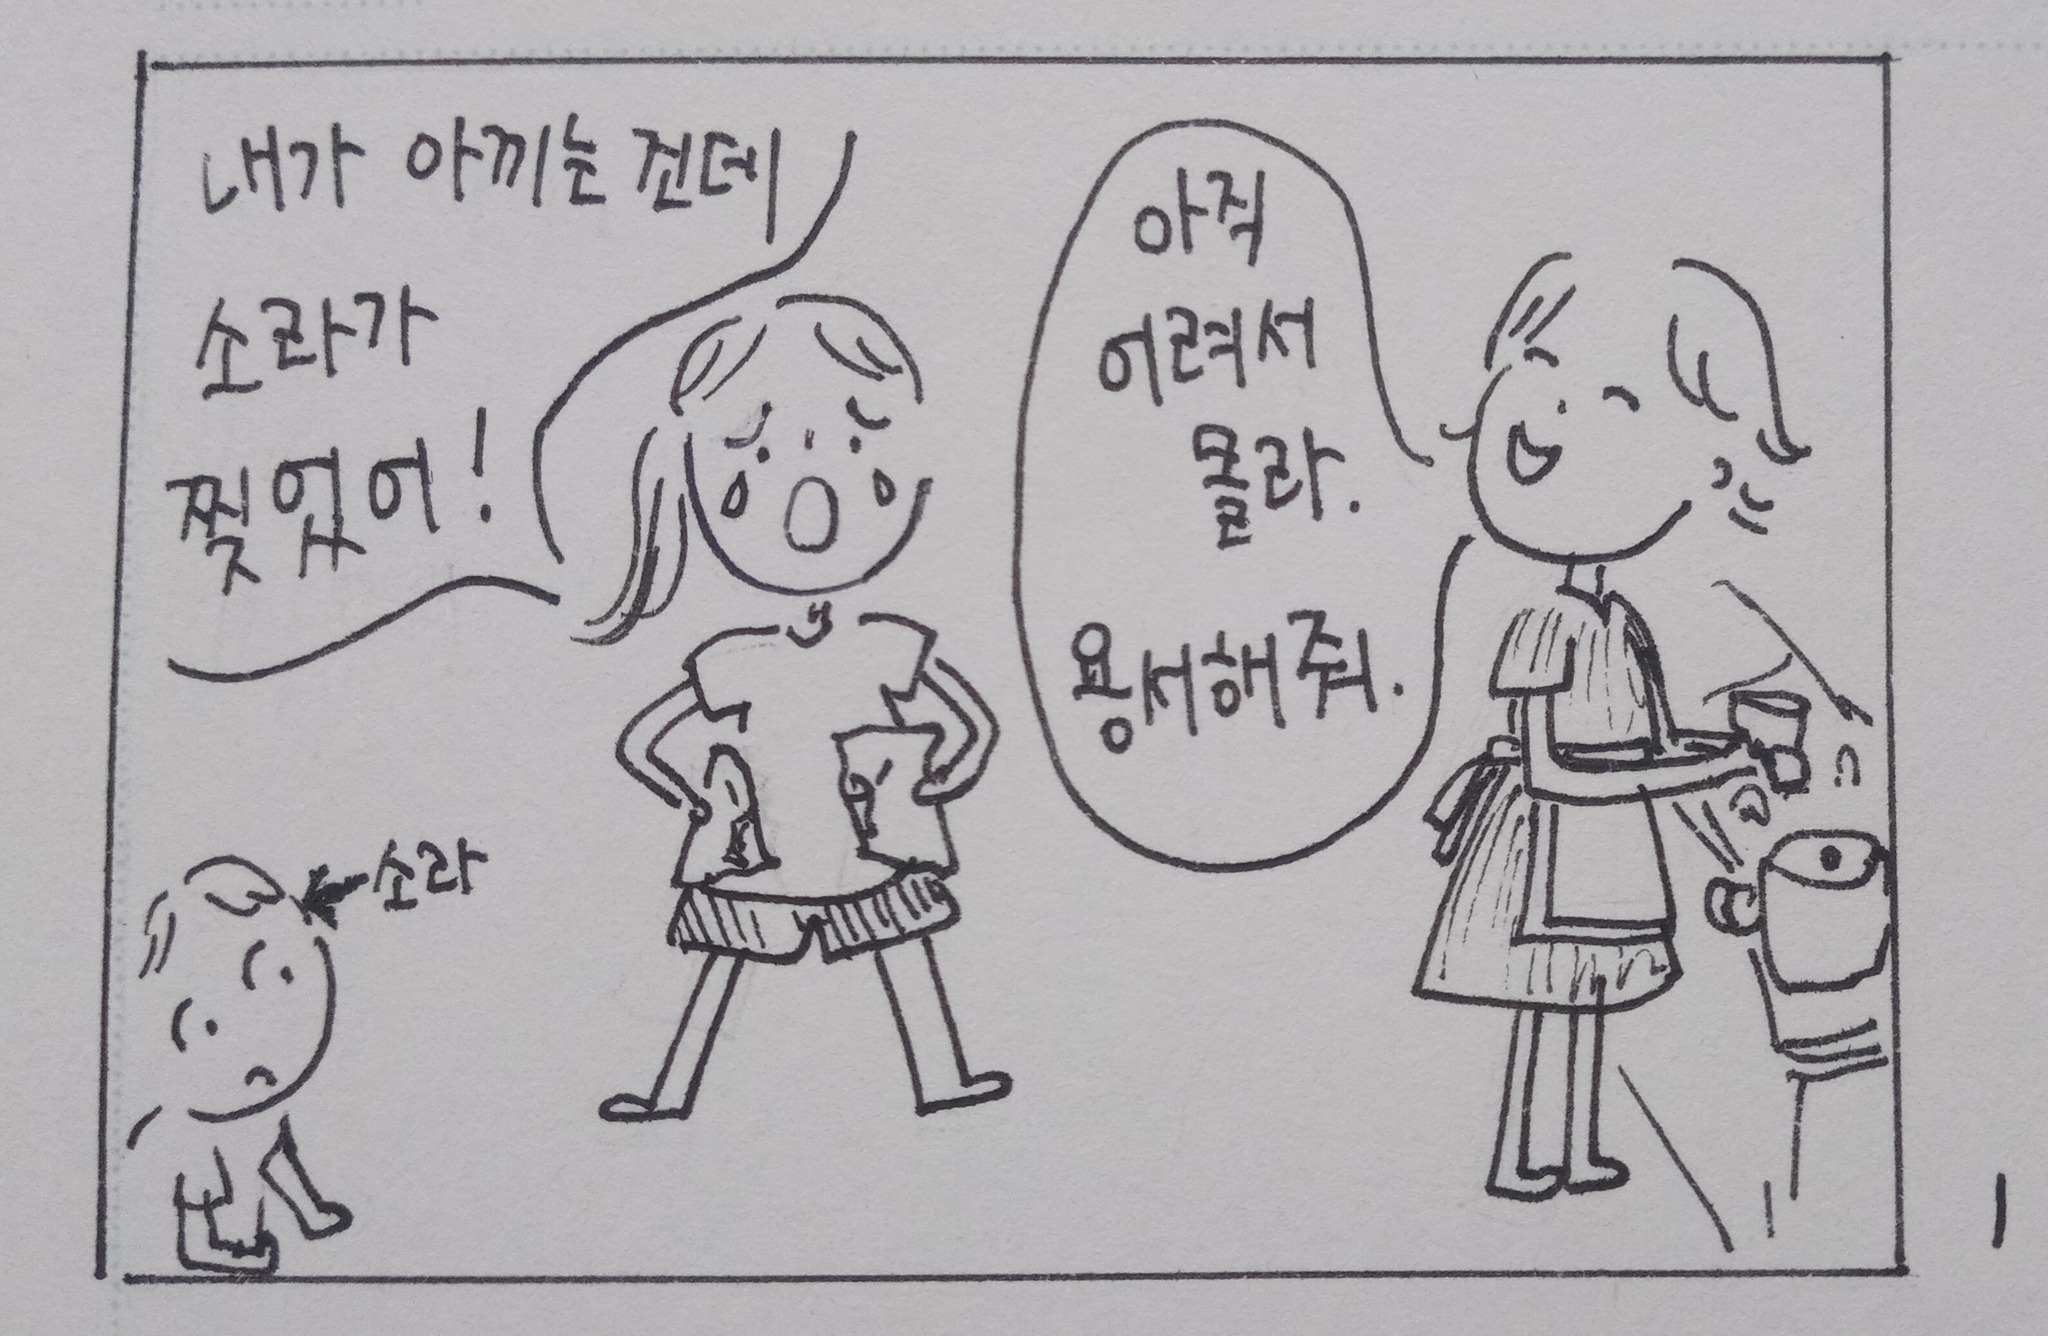 내가 아끼는건데
소라가
찢었어!
아직
어려서
몰라.
용서해줘.
소라
1